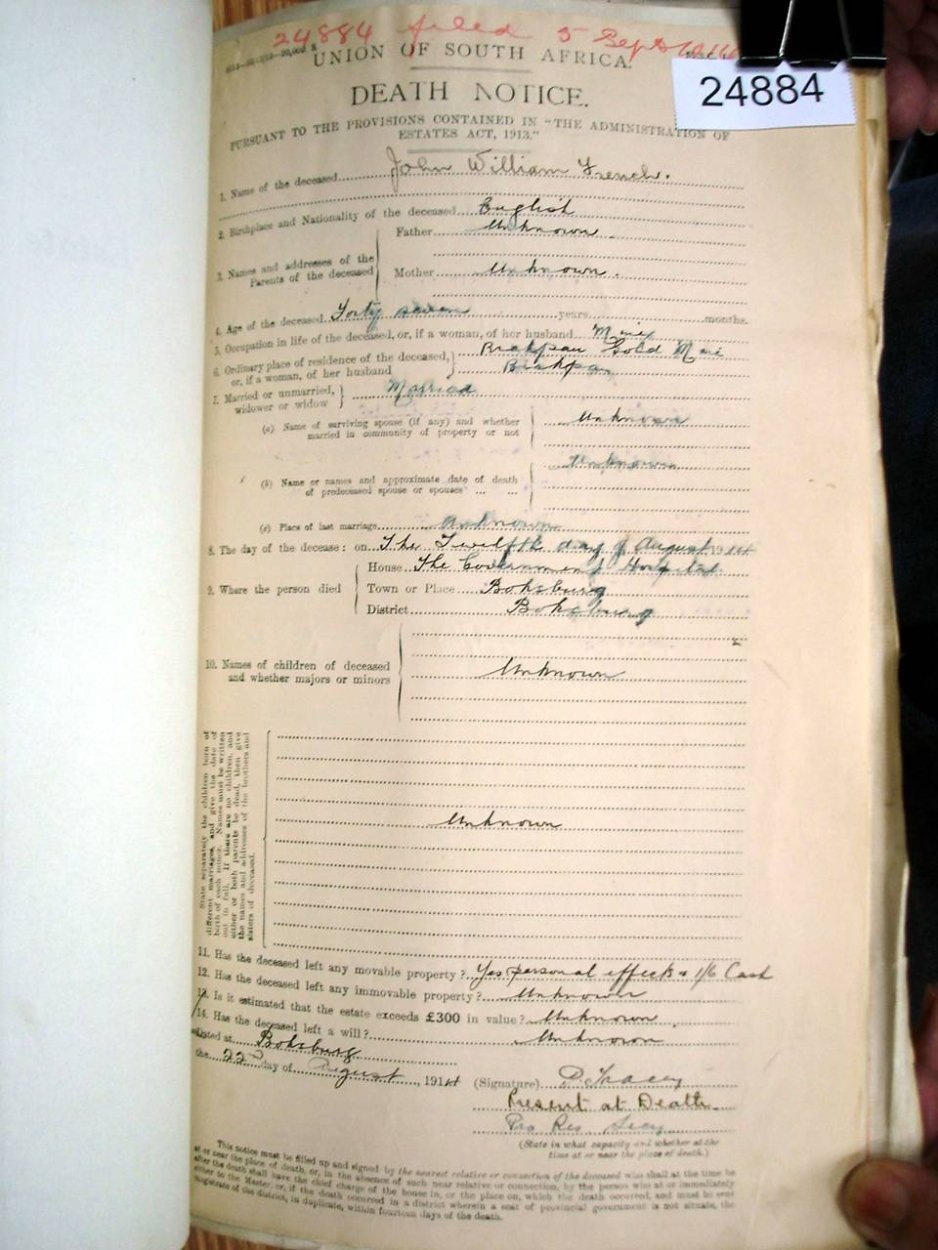 24884 filed 5 Sept
UNION OF SOUTH AFRICA.
24884
DEATH NOTICE.
PURSUANT TO THE PROVISIONS CONTAINED IN "THE ADMINISTRATION OF
ESTATES ACT, 1913."
1. Name of the deceased John William French.
2. Birthplace and Nationality of the deceased English
3. Names and addresses of the Parents of the deceased
Father Unknown
Mother Unknown.
4. Age of the deceased Forty seven years months.
5. Occupation in life of the deceased, or, if a woman, of her husband
6. Ordinary place of residence of the deceased, or, if a woman, of her husband
Brakpan Gold
Brakpan
7. Married or unmarried, widower or widow
Married
(a) Name of surviving spouse (if any) and whether married in community of property or not
Unknown
Unknown
(b) Name or names and approximate date of death
of predeceased spouse or spouses ... ...
(c) Place of last marriage Unknown
8. The day of the decease: on The Twelfth day of August 1914
9. Where the person died
House The Government Hospital
Town or Place Boksburg
District Boksburg
10. Names of children of deceased
and whether majors or minors
Unknown
State separately the children born of
different marriages, and give the date of
birth of each minor. Names must be written
out in full. If there are no children, and
either or both parents be dead, then give
the names and addresses of the brothers and
sisters of deceased.
Unknown
11. Has the deceased left any movable property? Yes personal effects & 1/6 Cash
12. Has the deceased left any immovable property? Unknown
13. Is it estimated that the estate exceeds £300 in value? Unknown
14. Has the deceased left a will? Unknown
Dated at Boksburg
the 22nd day of August, 1914
(Signature) P. Tracey
Present at Death
Pro Res. Secy
(State in what capacity and whether at the
time at or near the place of death.)
This notice must be filled up and signed by the nearest relative or connection of the deceased who shall at the time be
at or near the place of death, or, in the absence of such near relative or connection, by the person who at or immediately
after the death shall have the chief charge of the house in, or the place on, which the death occurred, and must be sent
either to the Master, or, if the death occurred in a district wherein a seat of provincial government is not situate, the
magistrate of the district, in duplicate, within fourteen days of the death.